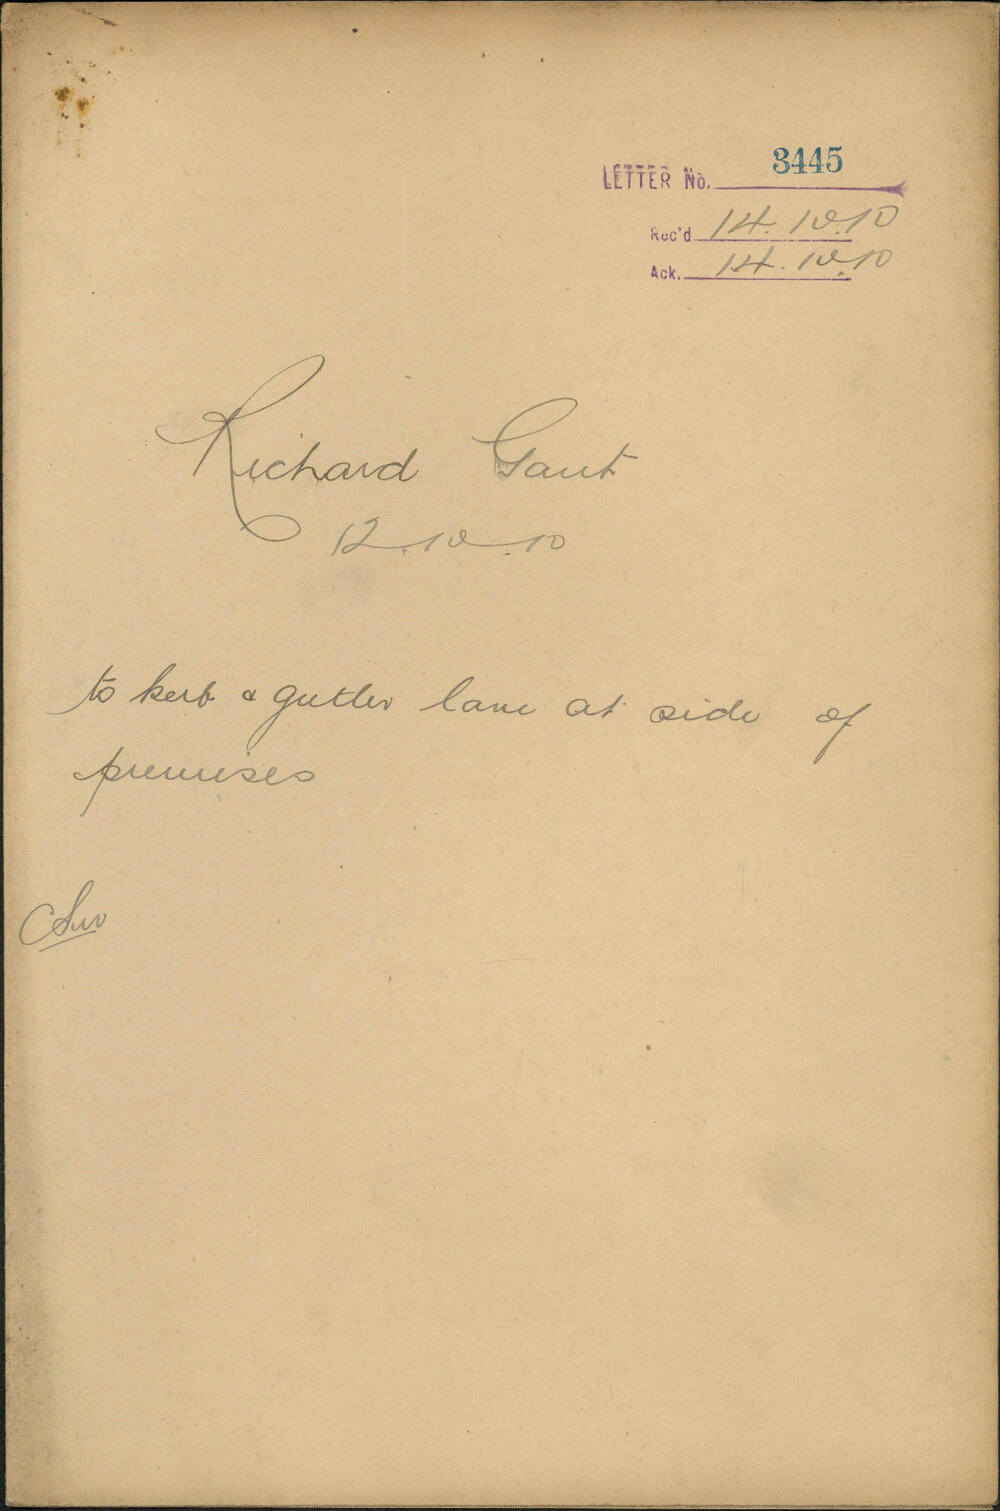 LETTER No. 3445
Rec'd 14.10.10
Ack. 14.10.10
Richard Gaut
12.10.10
to kerb & gutter lane at side of
premises
Sur